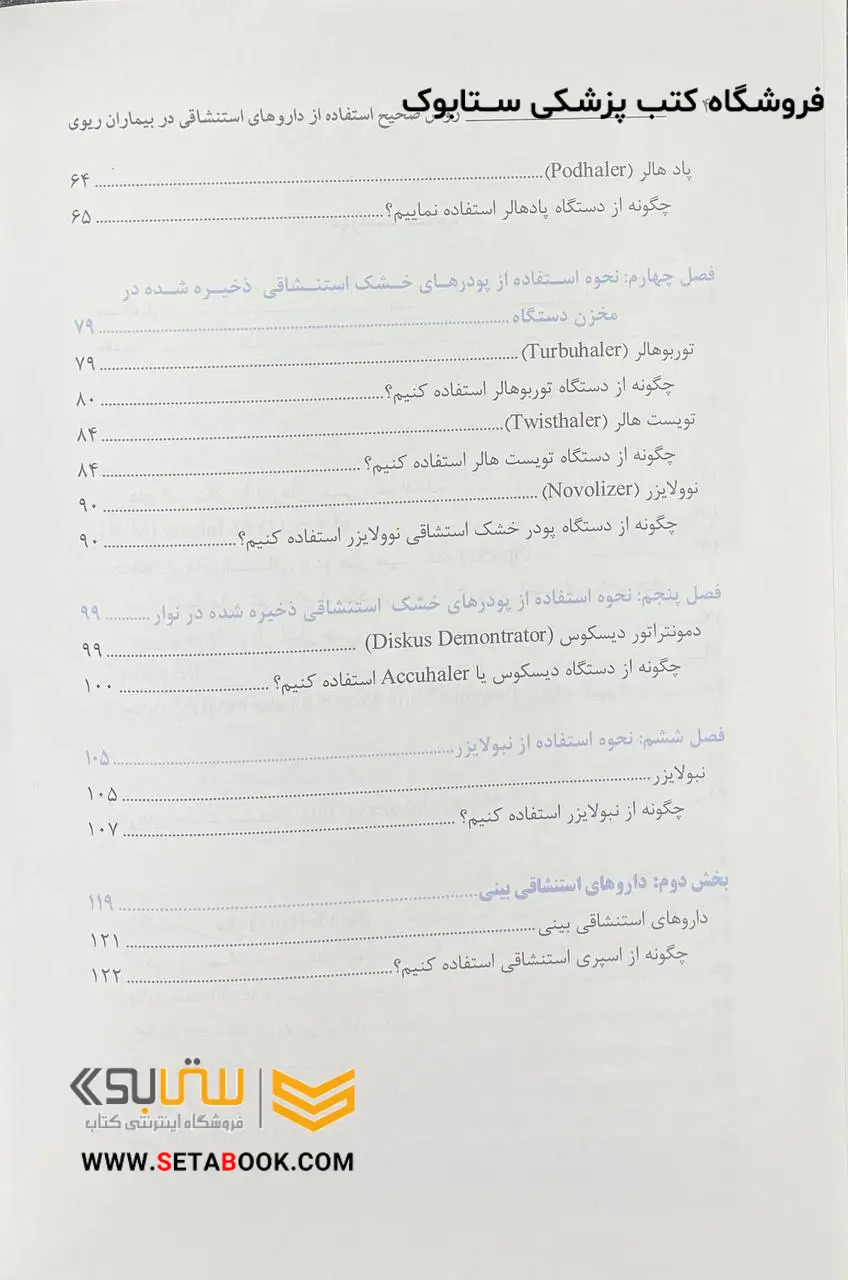 فروشگاه کتب پزشکی ستابوک
۴
روش صحیح استفاده از داروهای استنشاقی در بیماران ریوی
پاد هالر (Podhaler)............ ۶۴
چگونه از دستگاه پادهالر استفاده نماییم؟............ ۶۵
فصل چهارم: نحوه استفاده از پودرهای خشک استنشاقی ذخیره شده در
مخزن دستگاه............ ۷۹
توربوهالر (Turbuhaler)............ ۷۹
چگونه از دستگاه توربوهالر استفاده کنیم؟............ ۸۰
تویست هالر (Twisthaler)............ ۸۴
چگونه از دستگاه تویست هالر استفاده کنیم؟............ ۸۴
نوولایزر (Novolizer)............ ۹۰
چگونه از دستگاه پودر خشک استشاقی نوولایزر استفاده کنیم؟............ ۹۰
فصل پنجم: نحوه استفاده از پودرهای خشک استنشاقی ذخیره شده در نوار............ ۹۹
دمونتراتور دیسکوس (Diskus Demontrator)............ ۹۹
چگونه از دستگاه دیسکوس یا Accuhaler استفاده کنیم؟............ ۱۰۰
فصل ششم: نحوه استفاده از نبولایزر............ ۱۰۵
نبولایزر............ ۱۰۵
چگونه از نبولایزر استفاده کنیم؟............ ۱۰۷
بخش دوم: داروهای استنشاقی بینی............ ۱۱۹
داروهای استنشاقی بینی............ ۱۲۱
چگونه از اسپری استنشاقی استفاده کنیم؟............ ۱۲۲
ستابوک
فروشگاه اینترنتی کتاب
WWW.SETABOOK.COM